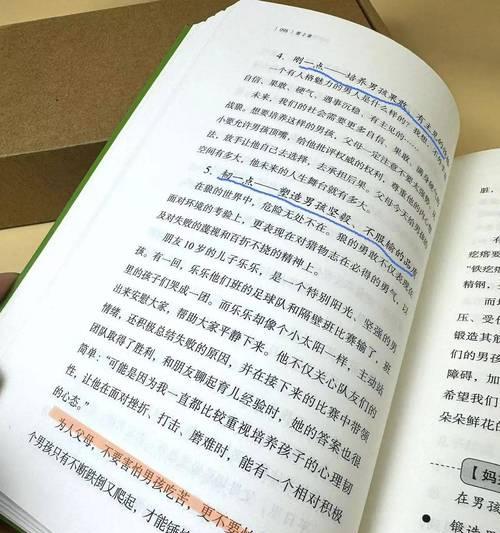 4. 刚一点——培养男孩果敢、有主见的
一个有人格魅力的男人是什么样的？我想，
自信、果敢、硬气、遇事沉稳、有主见的……
未来，我们的社会需要更多自信、果敢、满身
战狼。想要培养这样的男孩，父母一定注意不要太强势，
小要允许男孩顶嘴，给他批评权威的权利，尊重他的内心想
法，放手让他自己去选择，去承担后果。父母今天给男孩的
空间有多大，他未来的人生舞台就有多大。
5. 韧一点——塑造男孩坚毅、不服输的品质
在狼的世界中，危险无处不在。狼的勇敢不仅表现在
面对环境的考验上，更表现在对猎物志在必得的勇气，以
及对失败的蔑视和百折不挠的精神上。
朋友10岁的儿子乐乐，是一个特别阳光、坚强的男
孩。有一回，乐乐他们班的足球队和隔壁班比赛输了，班
里的孩子们哭成一团。而乐乐却像个小太阳一样，主动站
出来安慰大家，帮助大家平静下来。他不仅关心队友们的
情绪，还积极总结失败的原因，并在接下来的比赛中带领
团队取得了胜利。和朋友聊起育儿经验时，她的答案也很
简单：“可能是因为我一直都比较重视培养孩子的心理韧
性，让他在面对挫折、打击、磨难时，能有一个相对积极
的心态。”
为人父母，不要害怕男孩吃苦，更不要怕
个男孩只有不断跌倒又爬起，才能锤
脏。
疙瘩要
“铁疙瘩
精钢，
而
压、受
锻造其
们的男孩
障碍，加
希望我们
朵朵鲜花的
【妈
在男孩
● 锻造